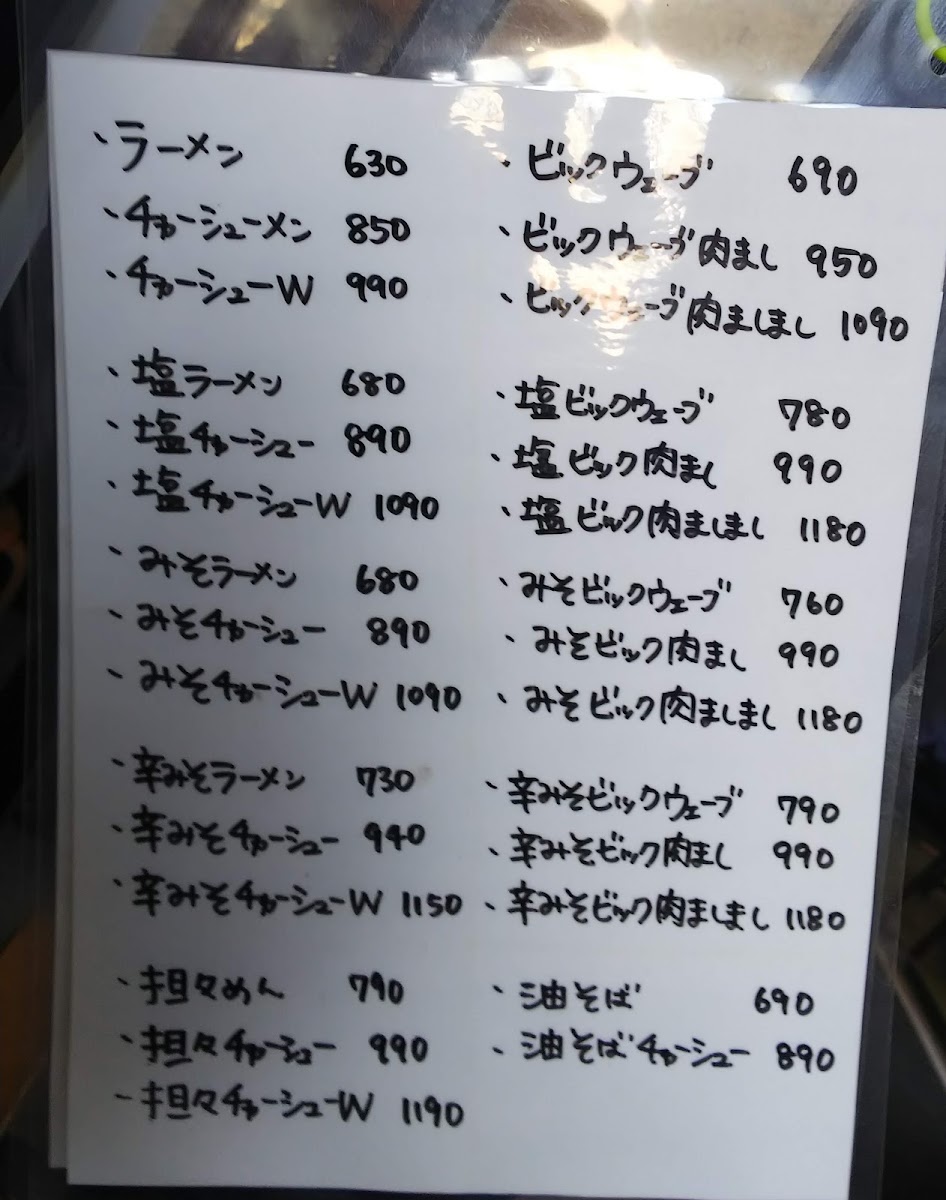 ・ラーメン 630
・チャーシューメン 850
・チャーシューW 990
・塩ラーメン 680
・塩チャーシュー 890
・塩チャーシューW 1090
・みそラーメン 680
・みそチャーシュー 890
・みそチャーシューW 1090
・辛みそラーメン 730
・辛みそチャーシュー 940
・辛みそチャーシューW 1150
・担々めん 790
・担々チャーシュー 990
・担々チャーシューW 1190
・ビックウェーブ 690
・ビックウェーブ肉まし 950
・ビックウェーブ肉ましまし 1090
・塩ビックウェーブ 780
・塩ビック肉まし 990
・塩ビック肉ましまし 1180
・みそビックウェーブ 760
・みそビック肉まし 990
・みそビック肉ましまし 1180
・辛みそビックウェーブ 790
・辛みそビック肉まし 990
・辛みそビック肉ましまし 1180
・油そば 690
・油そばチャーシュー 890